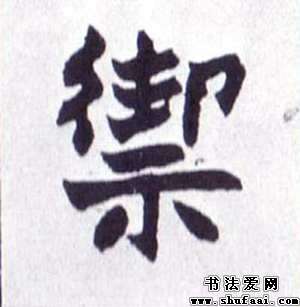 禦
书法爱网
www.shufaai.com